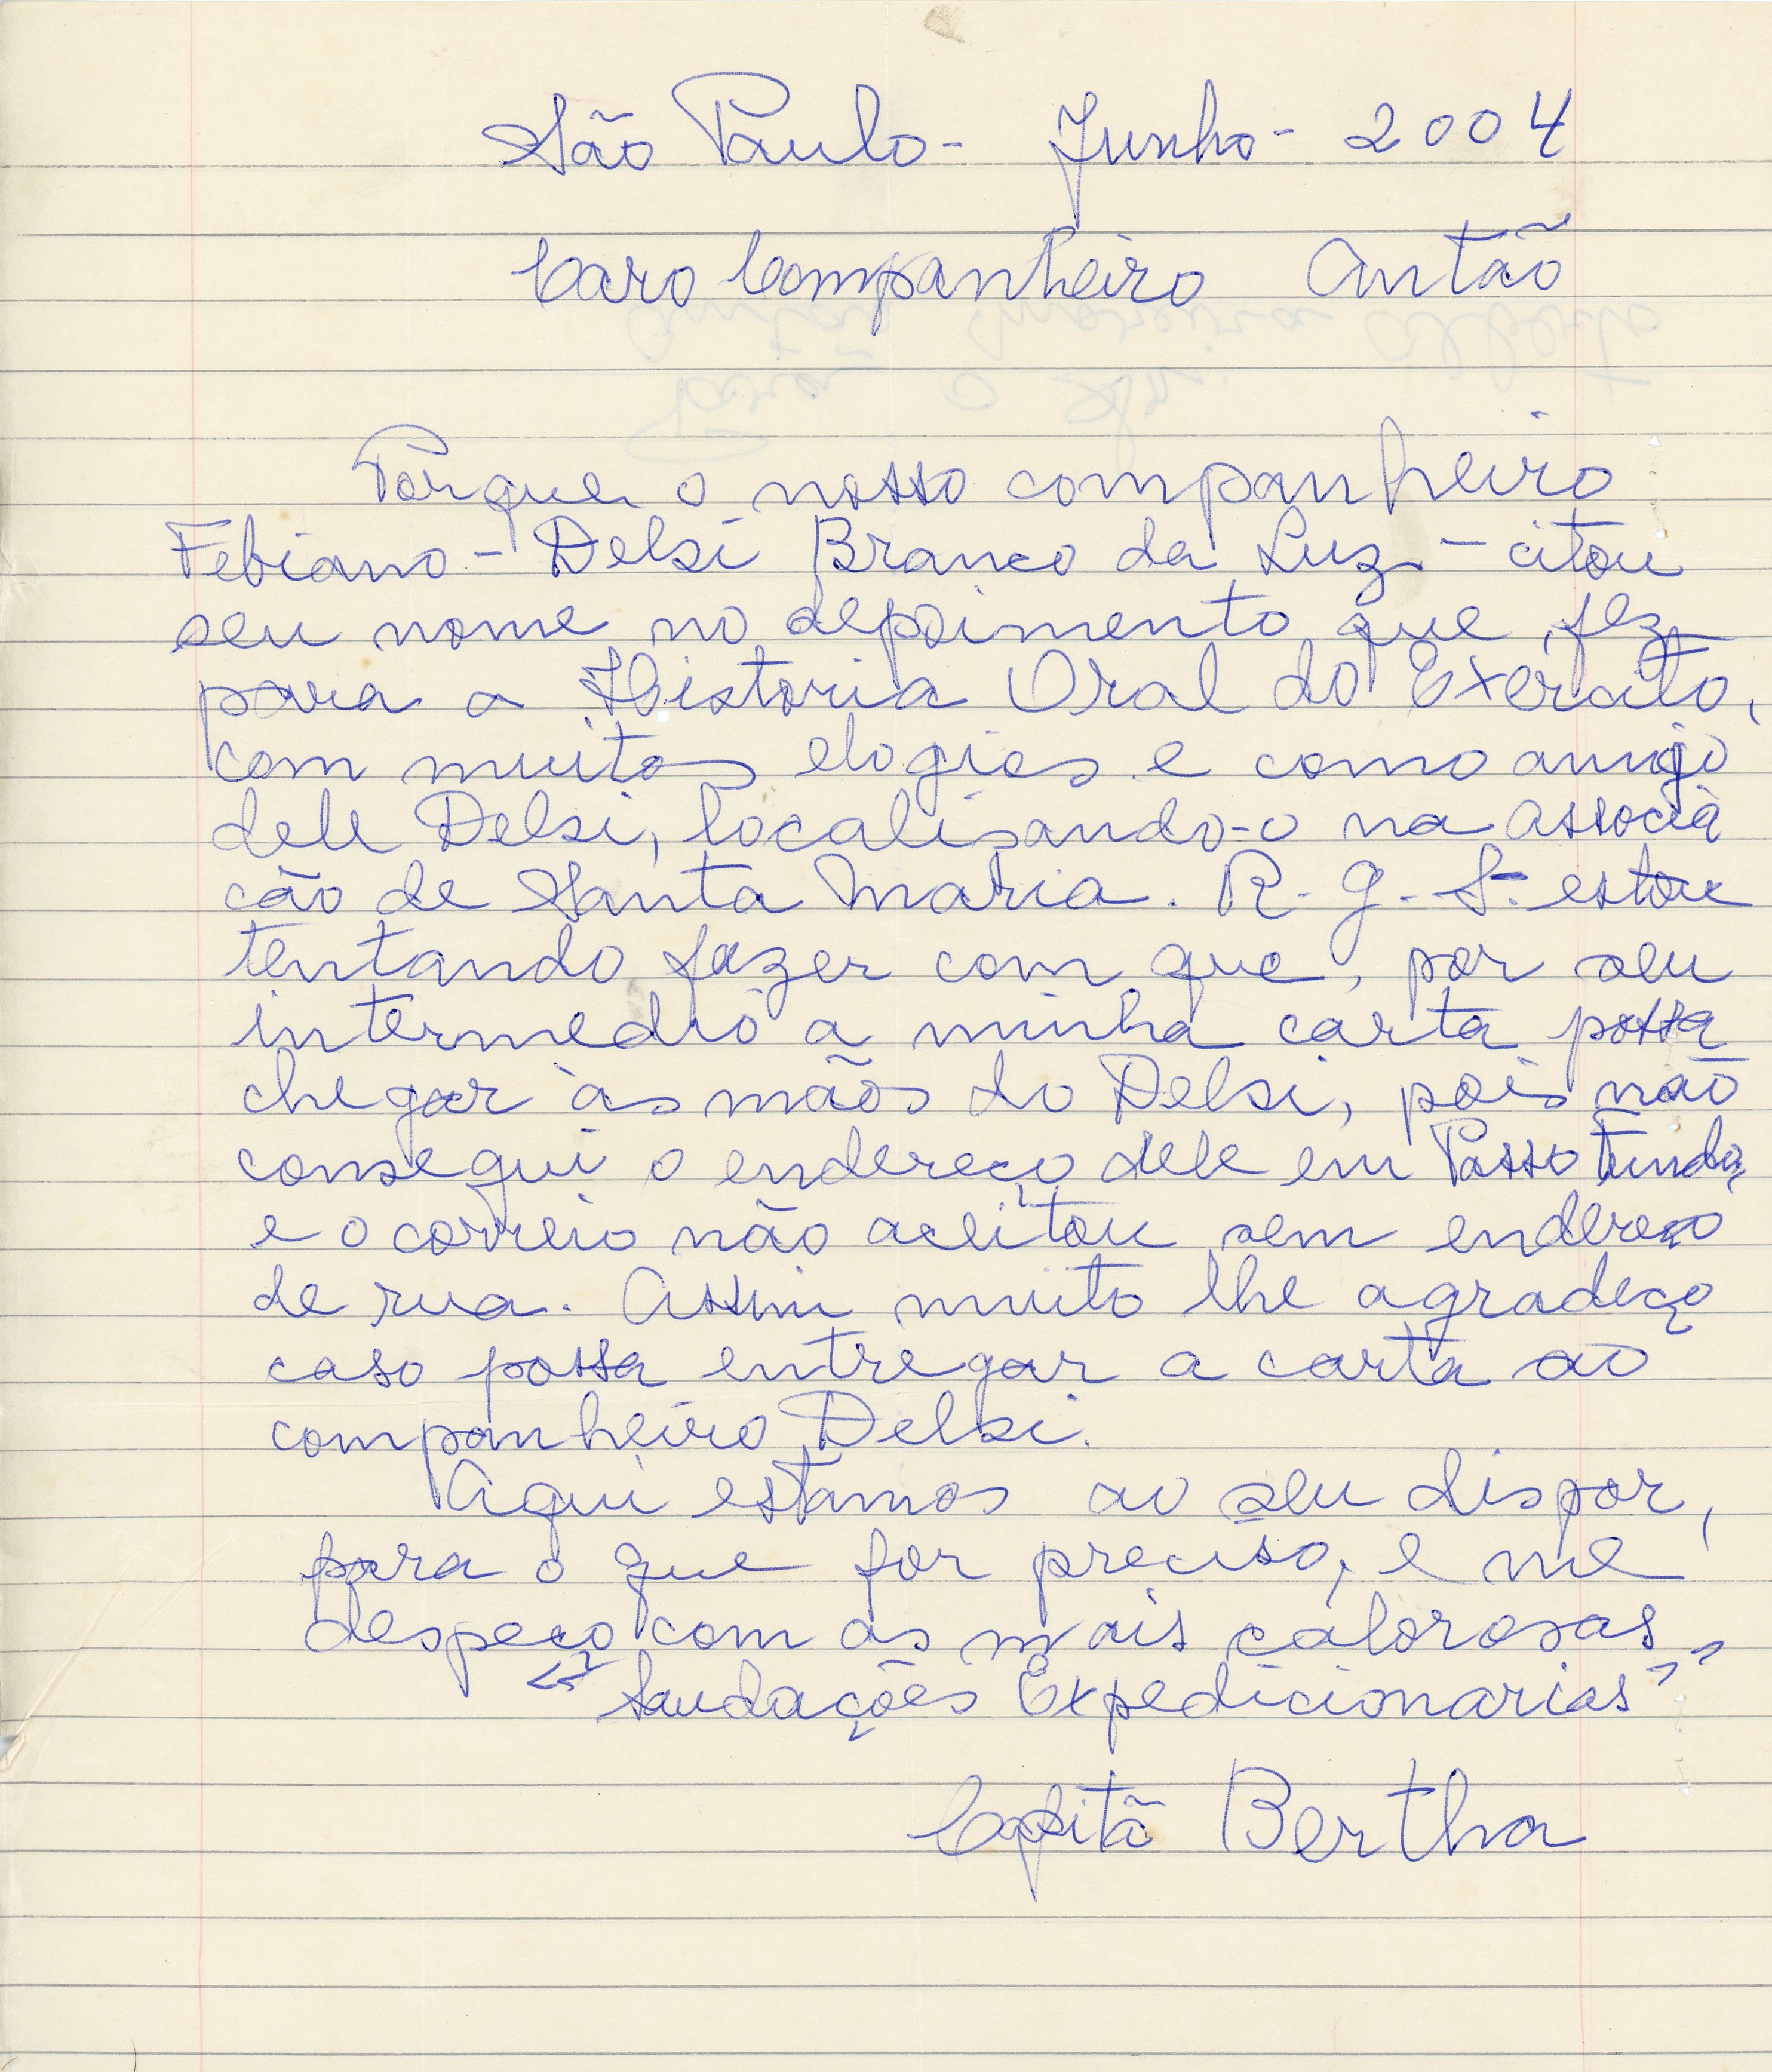 São Paulo - Junho - 2004
Caro Companheiro Antão
Porque o nosso companheiro
Febiano - Delsi Branco da Luz - citou
seu nome no depoimento que fez
para a Historia Oral do Exercito,
com muitos elogios e como amigo
dele Delsi, localisando-o na Associa
cão de Santa Maria. R. G. S. - estou
tentando fazer com que, por seu
intermedio a minha carta possa
chegar às mãos do Delsi, pois não
consegui o endereço dele em Passo Fundo,
e o correio não aceitou sem endereço
de rua. Assim muito lhe agradeço
caso possa entregar a carta ao
companheiro Delsi.
Aqui estamos ao seu dispor,
para o que for preciso, e me
despeço com as mais calorosas
"Saudações Expedicionarias"
Capitã Bertha